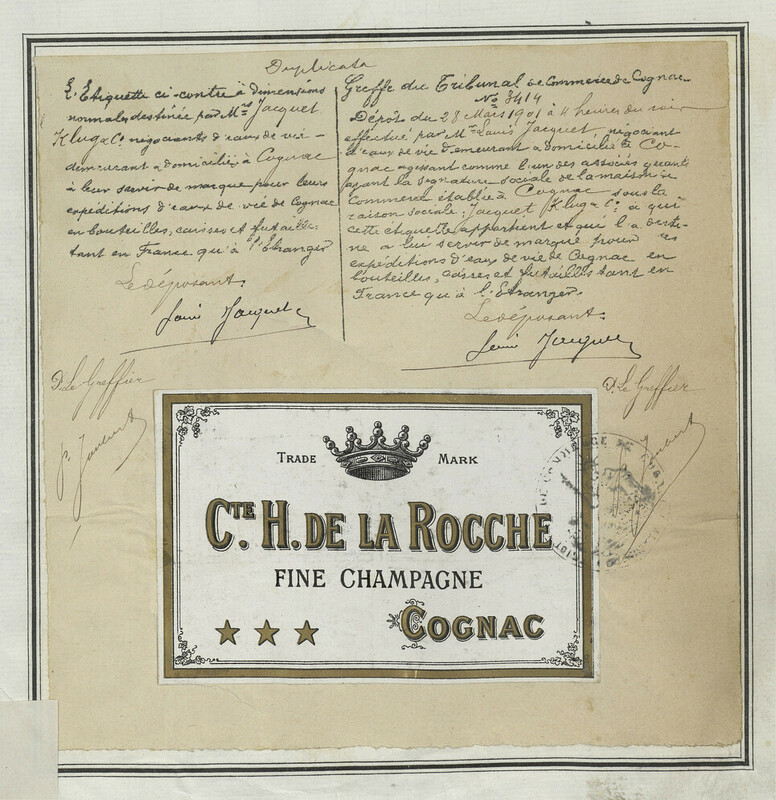 Duplicata
L'Etiquette ci-contre à dimensions
normales destinée par Mrs Jacquet
Klug & Co négociants d'eaux de vie
demeurant & domiciliés à Cognac
à leur servir de marque pour leurs
expéditions d'eaux de vie de Cognac
en bouteilles, caisses et futailles
tant en France qu'à l'Etranger
Le déposant.
Louis Jacquet
Greffe du Tribunal de Commerce de Cognac
No 3414
Dépôt du 28 Mars 1901 à 4 heures du soir
effectué par Mr Louis Jacquet, négociant
d'eaux de vie demeurant & domicilié à Co-
gnac agissant comme l'un des associés gérants
ayant la signature sociale de la maison de
Commerce établie à Cognac sous la
raison sociale: Jacquet Klug & Co à qui
cette étiquette appartient et qui l'a desti-
né à lui servir de marque pour ses
expéditions d'eaux de vie de Cognac en
bouteilles, caisses et futailles tant en
France qu'à l'Etranger.
Le déposant.
Louis Jacquet
P. Le Greffier
P. Le Greffier
TRADE MARK
CTE. H. DE LA ROCCHE
FINE CHAMPAGNE
COGNAC